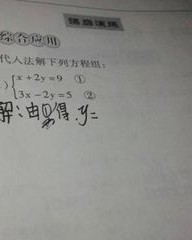 综合应用
代入法解下列方程组:
) { x + 2y = 9 ①
3x − 2y = 5 ②
解:由①得.y=